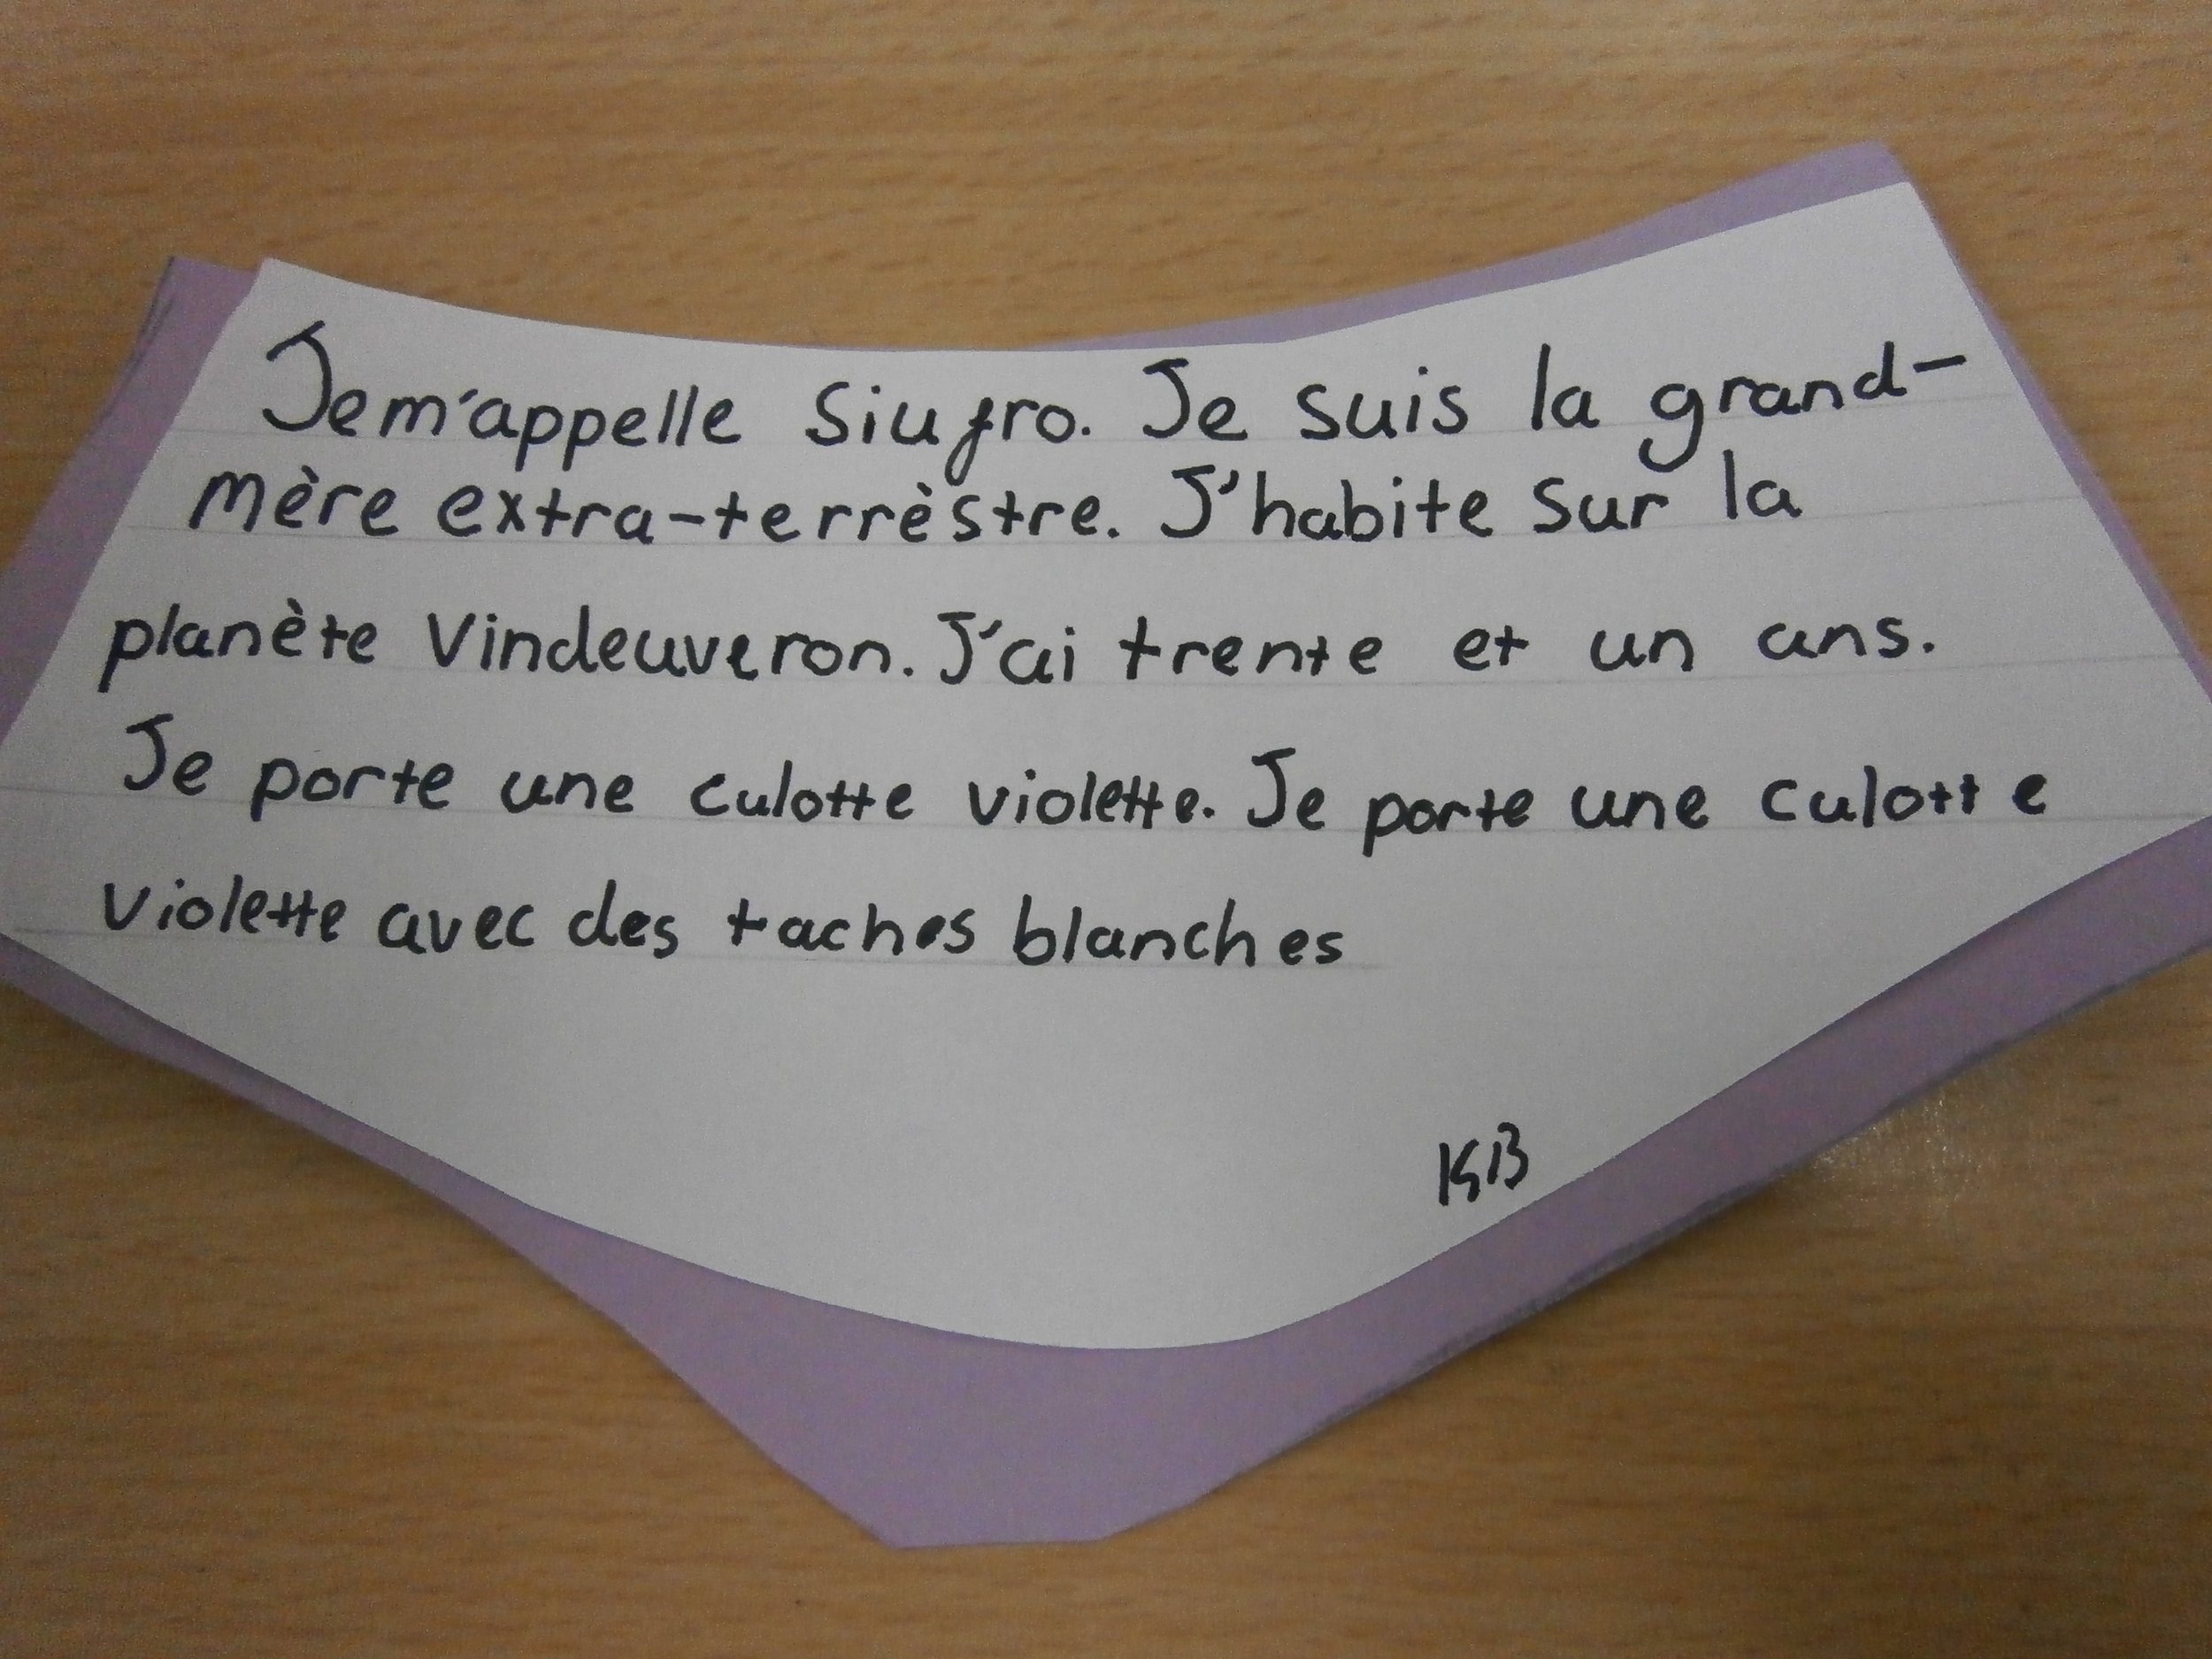 Je m'appelle Siufro. Je suis la grand-
mère extra-terrèstre. J'habite sur la
planète Vindeuveron. J'ai trente et un ans.
Je porte une culotte violette. Je porte une culotte
violette avec des taches blanches
KB